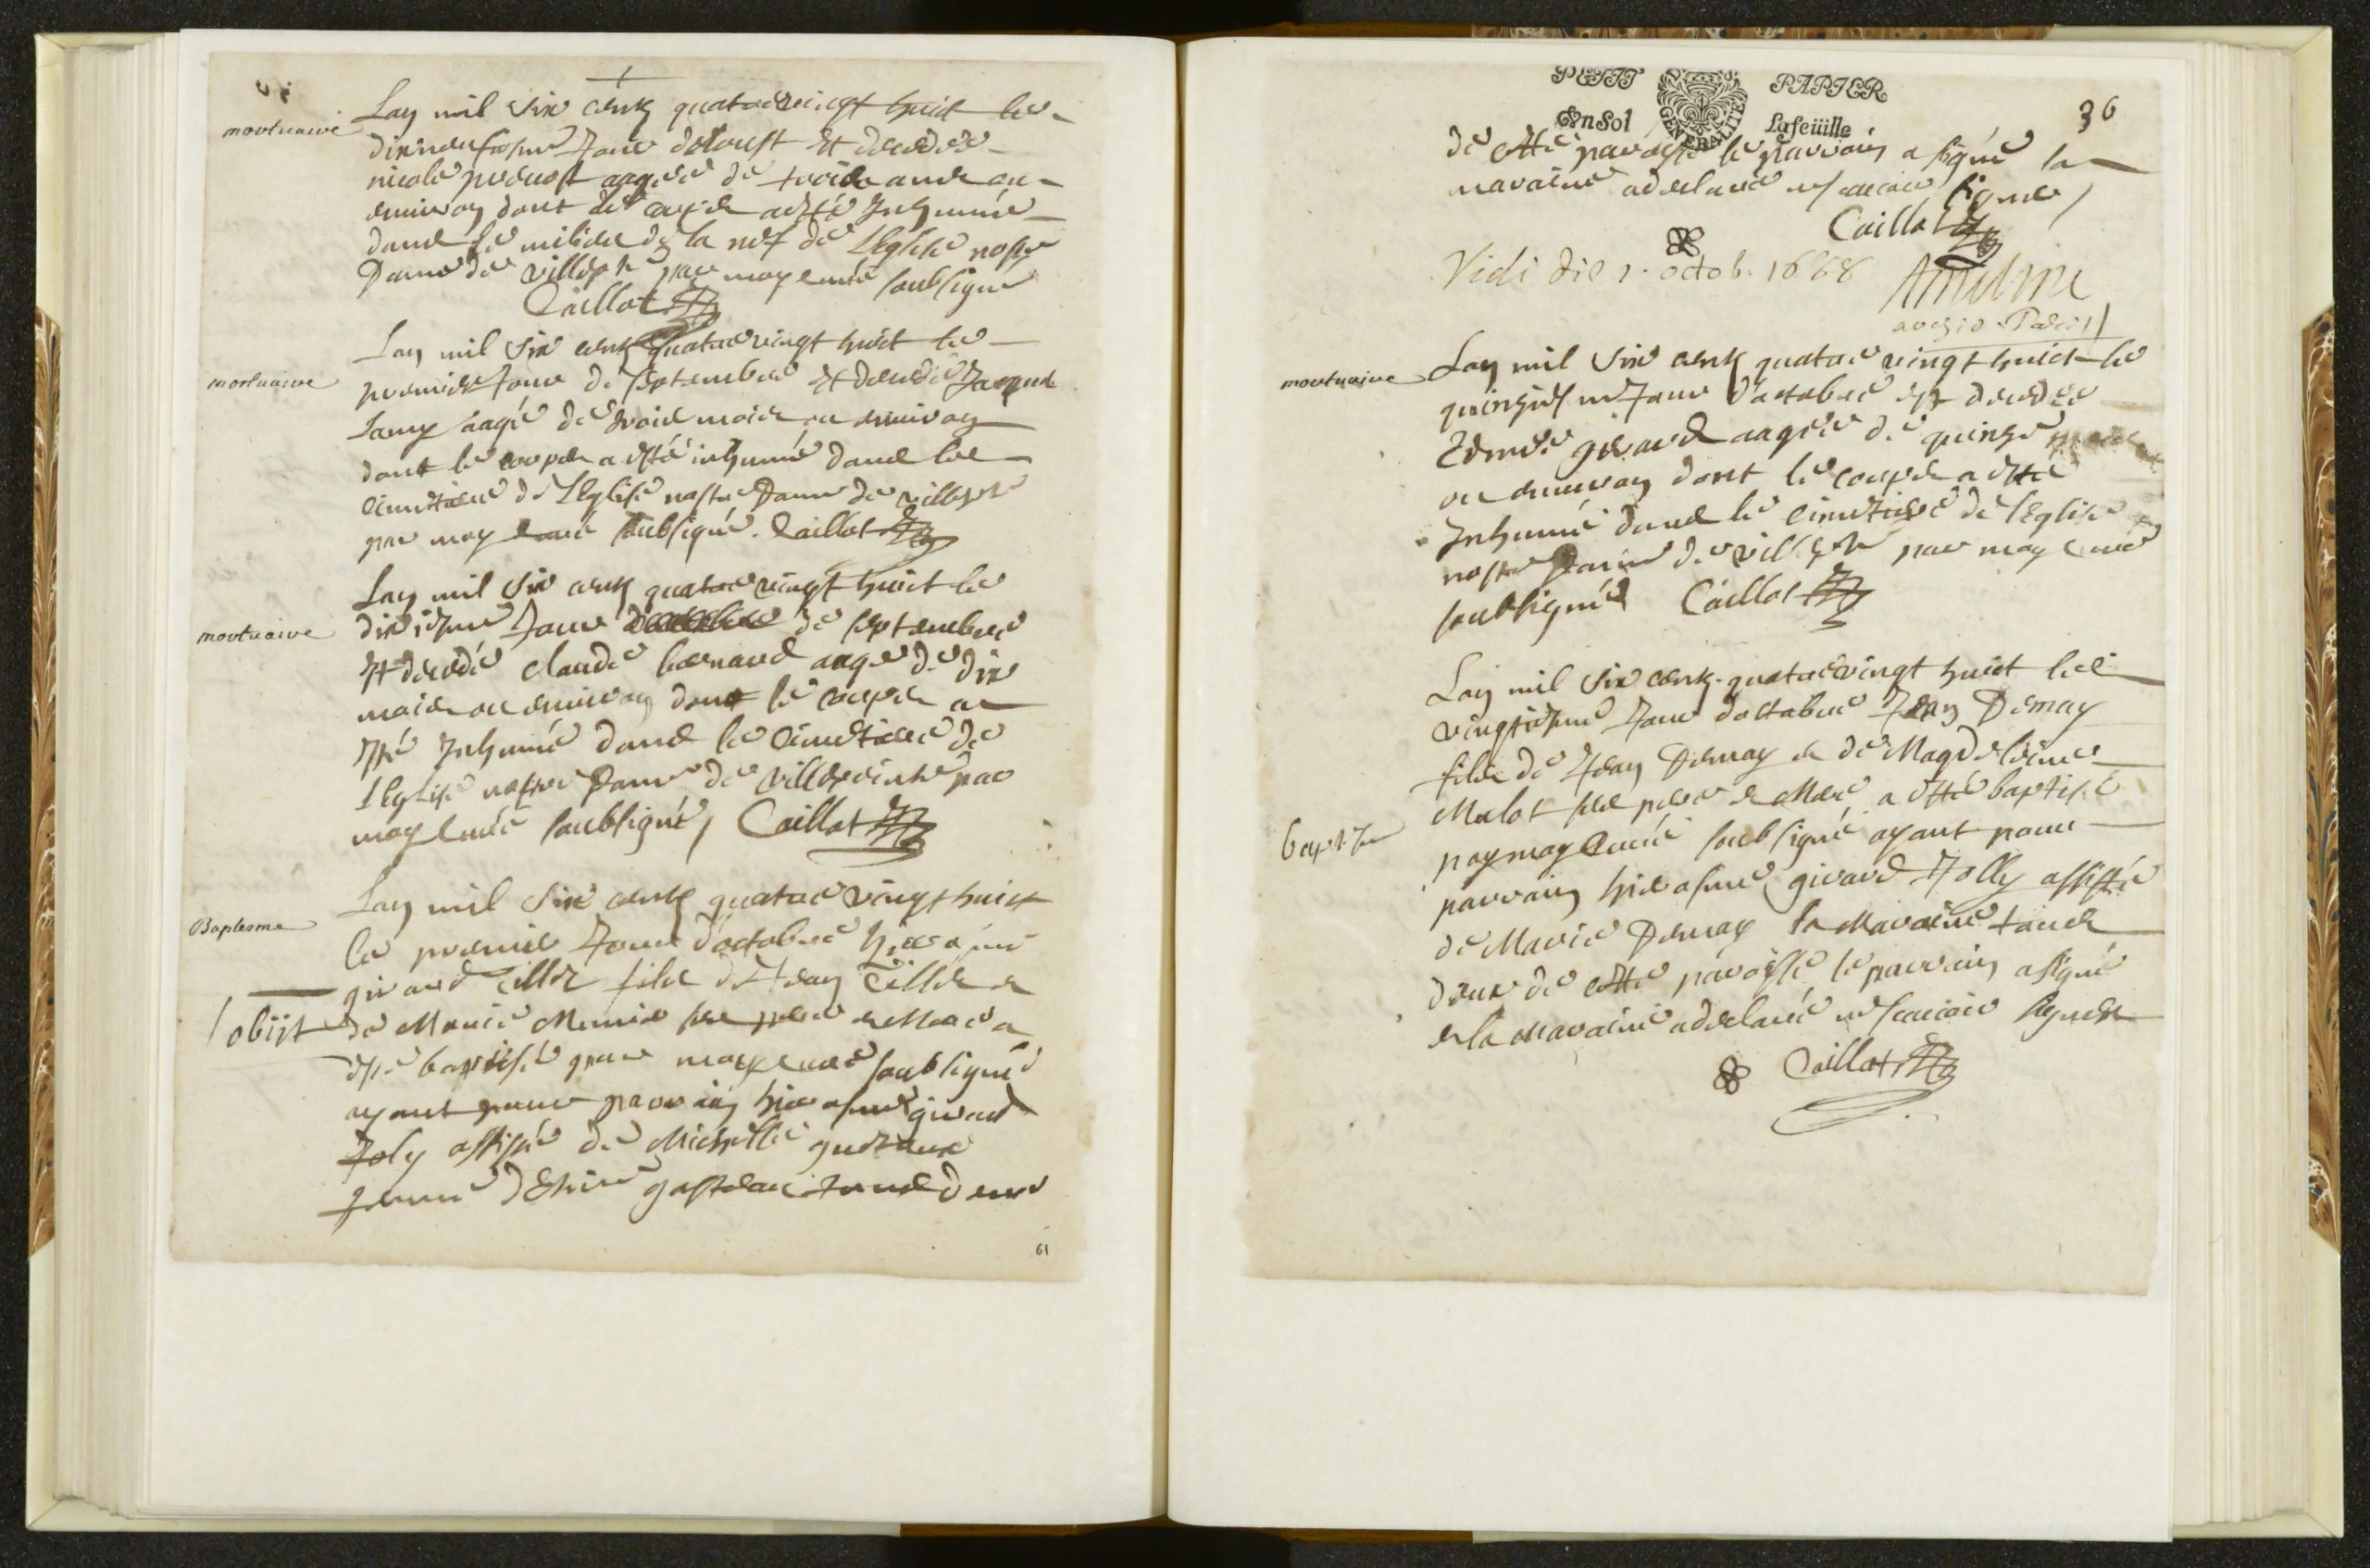 mortuaire
Lan mil six cents quatre vingt huict le
dixneufiesme Jour daoust Est decedée
nicole prevost aagée de trois ans ou
environ dont le corps a esté Inhumée
dans le milieu de la nef de LEglise nostre
Dame de par moy curé soubsigné
Caillot
mortuaire
Lan mil six cents quatre vingt huict le
premier Jour de septembre Est decedé Jacques
Lamy aagé de trois mois ou environ
dont le corps a esté inhumé dans le
cimetiere de LEglise nostre Dame de
par moy curé soubsigné. Caillot
mortuaire
Lan mil six cents quatre vingt huict le
dixiesme Jour de septembre
Est decedé claude bernard aagé de dix
mois ou environ dont le corps a
Esté Inhumé dans le cimetiere de
LEglise nostre Dame de villepeinte par
moy curé soubsigné, Caillot
Baptesme
Lan mil six cents quatre vingt huict
le premier Jour doctobre hierosme
girard Tillet fils de Jean Tillet et
obijt
de Marie ses pere et Mere a
esté baptisé par moy curé soubsigné
ayant pour parrain hierosme girard
Joly assisté de Michelle
femme gasteau tous deux
61
PETIT PAPIER
Un Sol La feüille
GENERALITE
36
de cette paroisse le parrain a signé la
maraine a declaré ne scavoir signer /
Caillot
Vidi die 1. octob. 1688
mortuaire
Lan mil six cents quatre vingt huict le
quinziesme Jour doctobre est decedée
Edmée girard aagée de quinze
ou environ dont le corps a esté
Inhumé dans le cimetiere de lEglise
nostre Dame de par moy curé
soubsigné Caillot
baptesme
Lan mil six cents quatre vingt huict le
vingtiesme Jour doctobre Jean Demay
fils de Jean Demay et de Magdeleine
Malot ses pere et Mere a esté baptisé
par moy Curé soubsigné ayant pour
parrain hierosme girard Jolly assisté
de Marie Demay la Maraine tous
deux de cette paroisse le parrain a signé
et la Maraine a declaré ne scavoir signer
Caillot